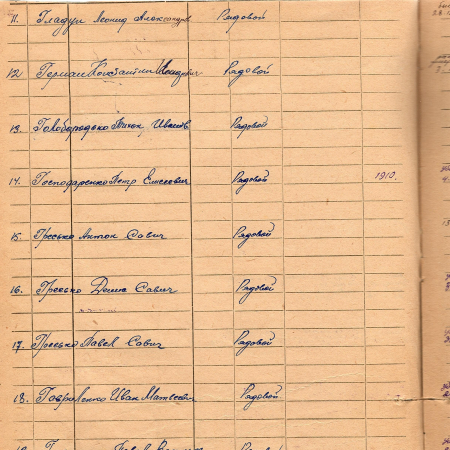 11. Гладун Леонид Александров Рядовой
12 Герман Константин Рядовой
13. Голобородько Иванов Рядовой
14. Господаренко Петр Елисеевич Рядовой 1910.
15. Гресько Антон Савич Рядовой
16. Гресько Денис Савич Рядовой
17. Гресько Павел Савич Рядовой
18. Гавриленко Иван Матвеевич Рядовой